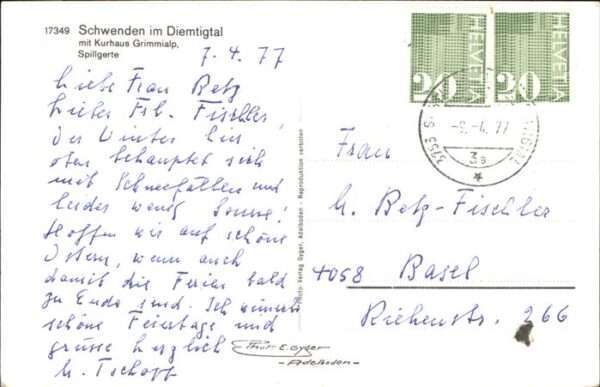 17349 Schwenden im Diemtigtal
mit Kurhaus Grimmialp,
Spillgerte
7.4.77
Liebe Frau Betz
Liebes Frl. Fischler,
Der Winter hier
oben behauptet sich
mit Schneefällen und
leider wenig Sonne!
Hoffen wir auf schöne
Ostern, wenn auch
damit die Ferien bald
zu Ende sind. Ich wünsche
schöne Feiertage und
grüsse herzlich
M. Tschopp
Photo-Verlag Gyger, Adelboden - Reproduktion verboten
Phot. E. Gyger
Adelboden
HELVETIA 20
HELVETIA 20
3753
-9.-4.77
Frau
M. Betz-Fischler
4058 Basel
Riehenstr. 266